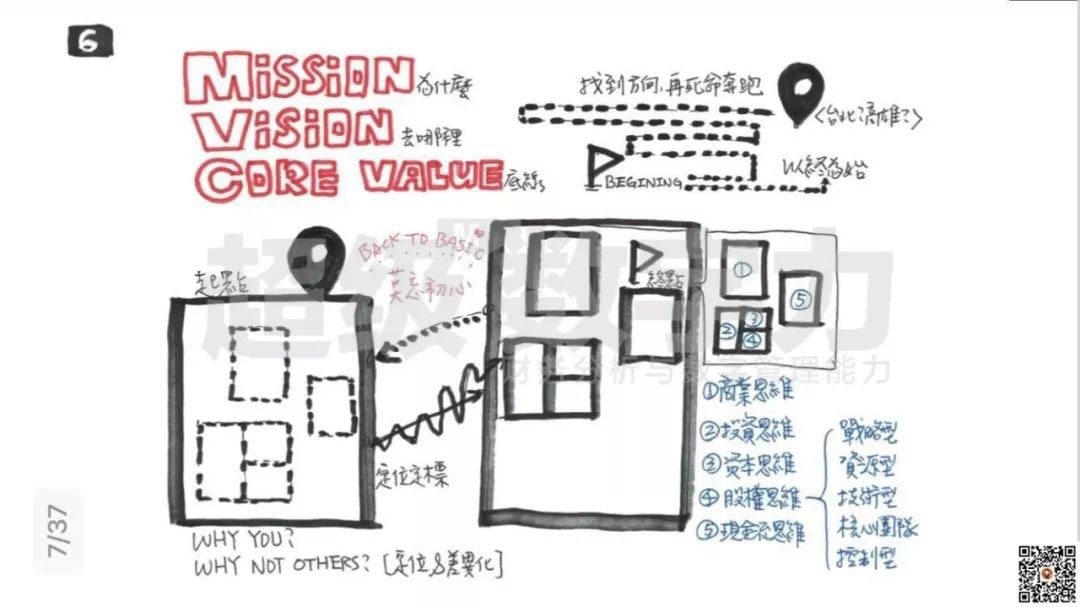 6
MISSION 為什麼
VISION 去哪裡
CORE VALUE 底線
找到方向，再死命奔跑
<台北?高雄?>
BEGINING
以終為始
起點
BACK TO BASIC
莫忘初心
定位定標
終點
① ⑤
② ③
④
超级数字力
财务分析与数字管理能力
①商業思維
②投資思維
③資本思維
④股權思維
⑤現金流思維
戰略型
資源型
技術型
核心團隊
控制型
WHY YOU?
WHY NOT OTHERS? [定位&差異化]
7/37